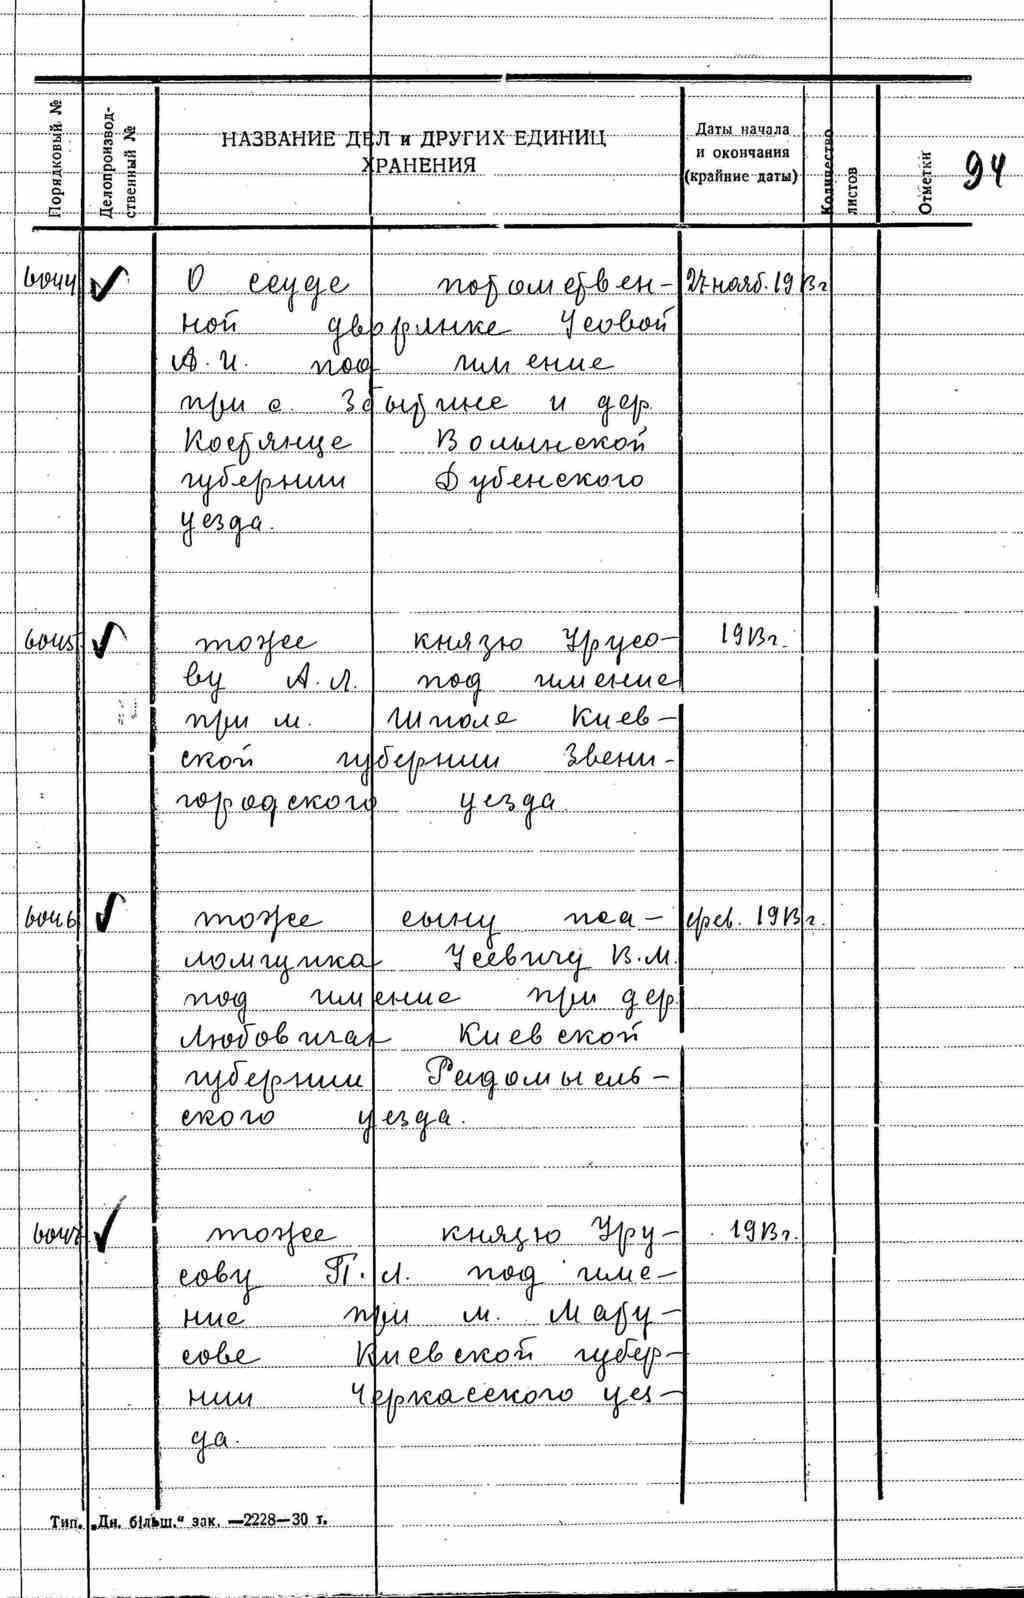 Порядковый №
Делопроизвод-
ственный №
НАЗВАНИЕ ДЕЛ и ДРУГИХ ЕДИНИЦ
ХРАНЕНИЯ
Даты начала
и окончания
(крайние даты)
Количество
листов
Отметки
94
6044 ✓ О ссуде потомствен-
ной дворянке Усовой
А.И. под имение
при с. Збытине и дер.
Костянце Волынской
губернии Дубенского
уезда.
нояб. 1913 г.
6045 ✓ тоже князю Урусо-
ву А.Л. под имение
при м. Шполе Киев-
ской губернии Звени-
городского уезда
1913 г.
6046 ✓ тоже сыну пса-
ломщика Усевичу В.М.
под имение при дер.
Любовичах Киевской
губернии Радомысль-
ского уезда.
фев. 1913 г.
6047 ✓ тоже князю Уру-
сову П.Л. под име-
ние при м.
Киевской губер-
нии Черкасского уез-
да.
1913 г.
Тип. „Дн. більш." зак. —2228—30 т.